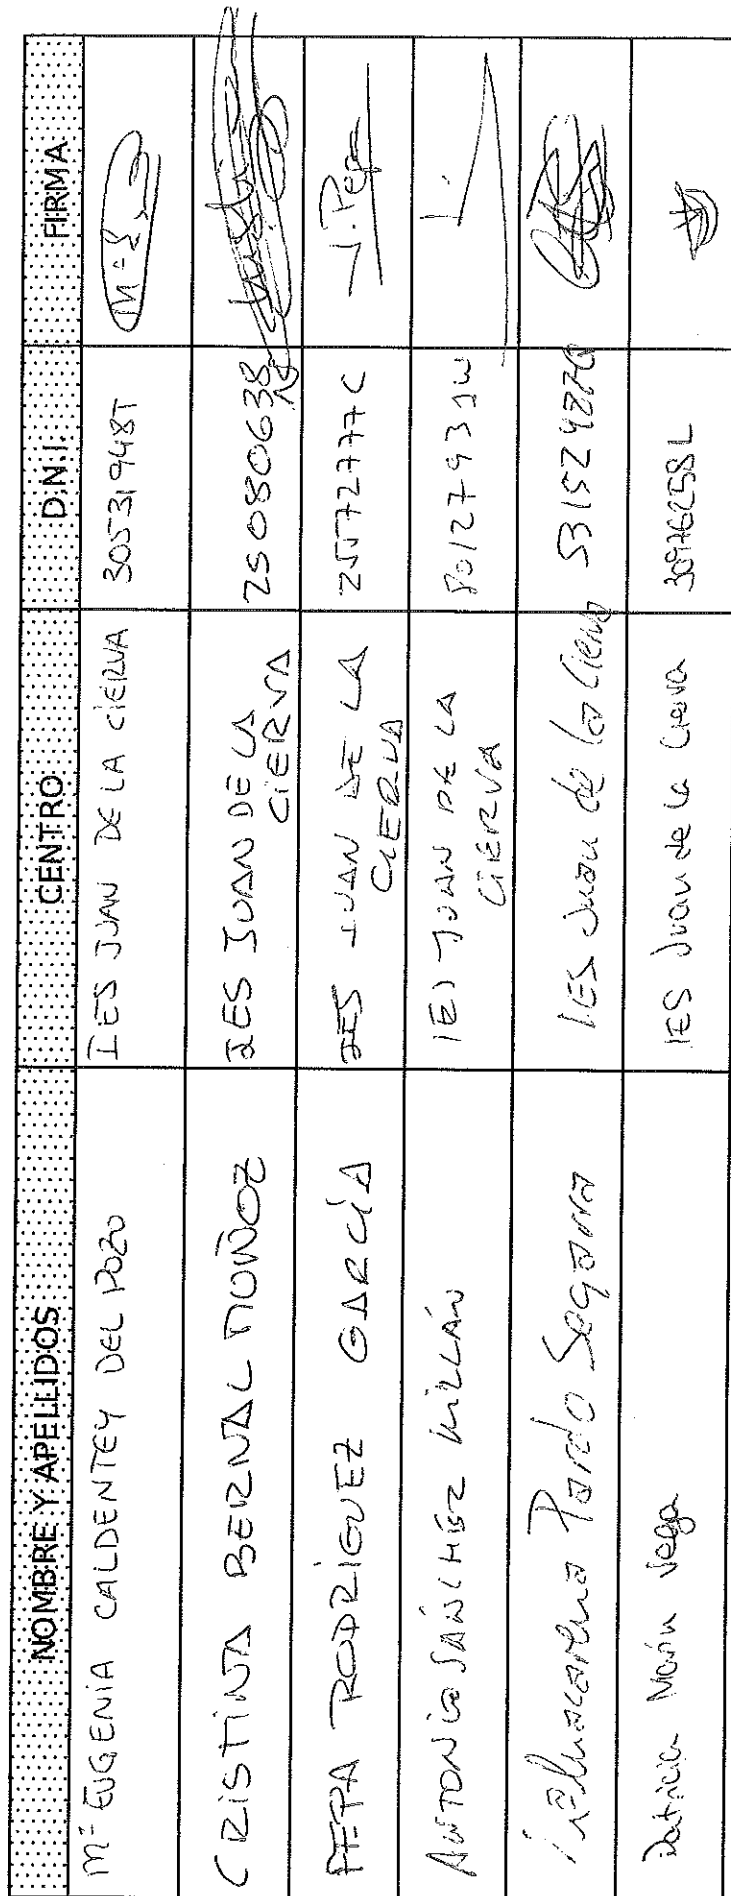 NOMBRE Y APELLIDOS CENTRO D.N.I. FIRMA
Mª EUGENIA CALDENTEY DEL POZO IES JUAN DE LA CIERVA 30531948T
CRISTINA BERNAL MUÑOZ IES JUAN DE LA CIERVA 25080638
PEPA RODRÍGUEZ GARCÍA IES JUAN DE LA CIERVA 25572777C J. Pepa
ANTONIO SÁNCHEZ MILLÁN IES JUAN DE LA CIERVA 80127931W
Pardo Segarra IES Juan de la Cierva
Patricia Marín Vega IES Juan de la Cierva 30976258L